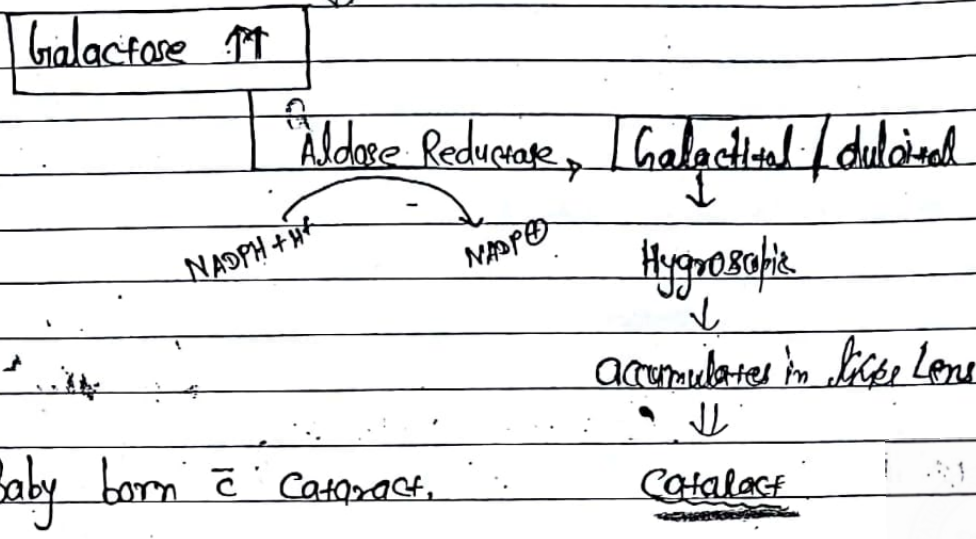 Galactose ↑↑
Aldose Reductase → Galactitol / dulcitol
↓
NADPH + H⁺ NADP⊕
Hygroscopic
↓
accumulates in Lens
⇓
Baby born c̄ Cataract. Cataract